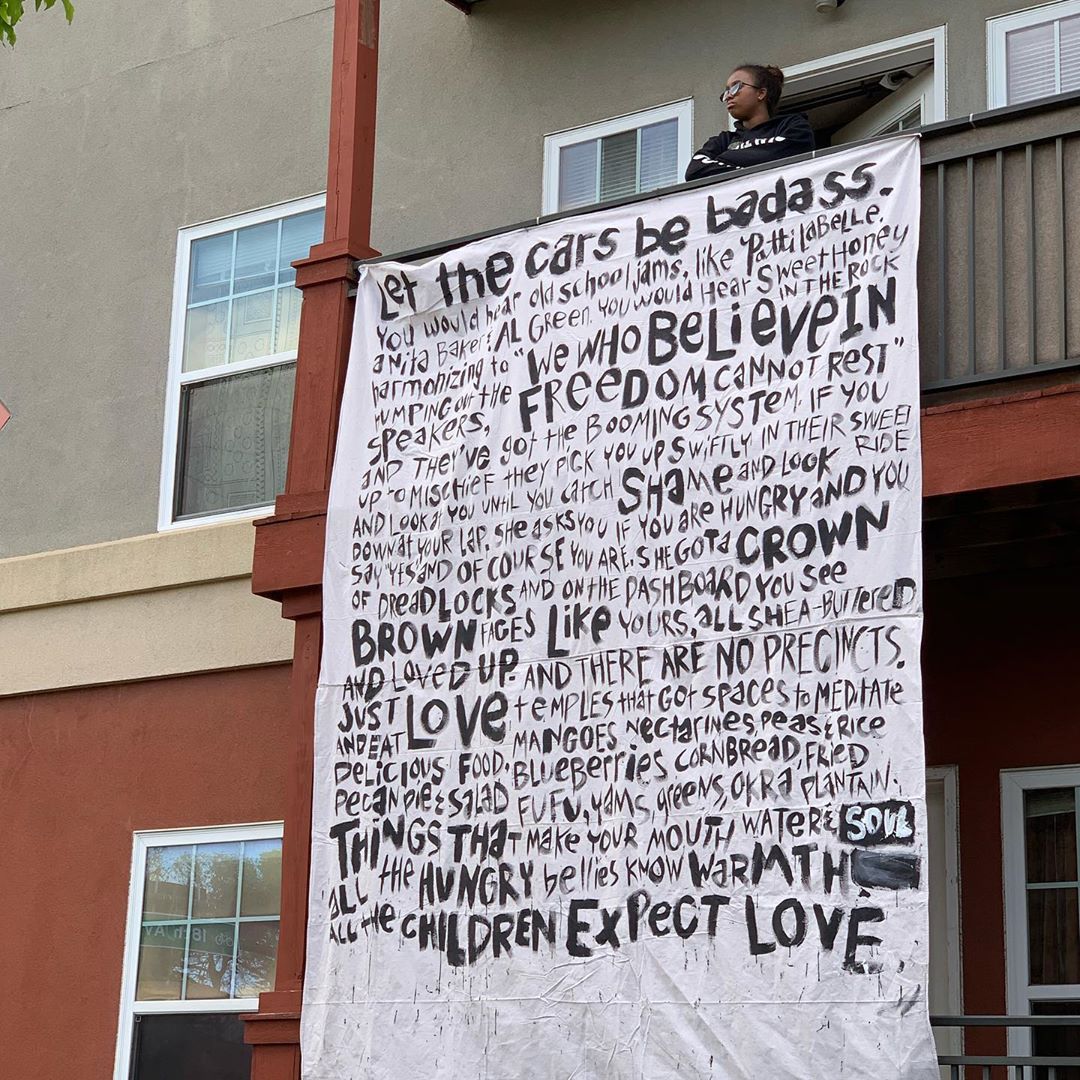 Let the cars be badass.
You would hear old school jams, like Patti LaBelle,
anita Baker & AL Green. You would Hear Sweet Honey
IN THE ROCK
harmonizing to "WE WHO BELIEVE IN
FREEDOM CANNOT REST"
HUMPING out the
SPEAKERS,
AND THEY'VE got the BOOMING SYSTEM. IF YOU
UP to MISCHIEF they PICK YOU UP SWIFTLY IN THEIR SWEET
RIDE
AND LOOK at YOU UNTIL YOU CATCH SHAME AND LOOK
DOWN at YOUR LAP. SHE ASKS YOU IF YOU ARE HUNGRY AND YOU
SAY "YES" AND OF COURSE YOU ARE. SHE GOT a CROWN
OF DREADLOCKS AND ON THE DASHBOARD YOU SEE
BROWN FACES LIKE YOURS, ALL SHEA-BUTTERED
AND LOVED UP. AND THERE ARE NO PRECINCTS.
JUST LOVE tEMPLES tHAt Got SPACES to MEDITATE
AND EAT
DELICIOUS FOOD. MANGOES nectarines, PEAS & RICE
BLUEBERRIES CORNBREAD, FRIED
PECAN PIE & SALAD FUFU, YAMS, greens, OKRA PLANTAIN.
THINGS THAT MAKE YOUR MOUTH WATER & SOUL
ALL the HUNGRY bellies KNOW WARMTH.
ALL the CHILDREN EXPECT LOVE.
18th Av